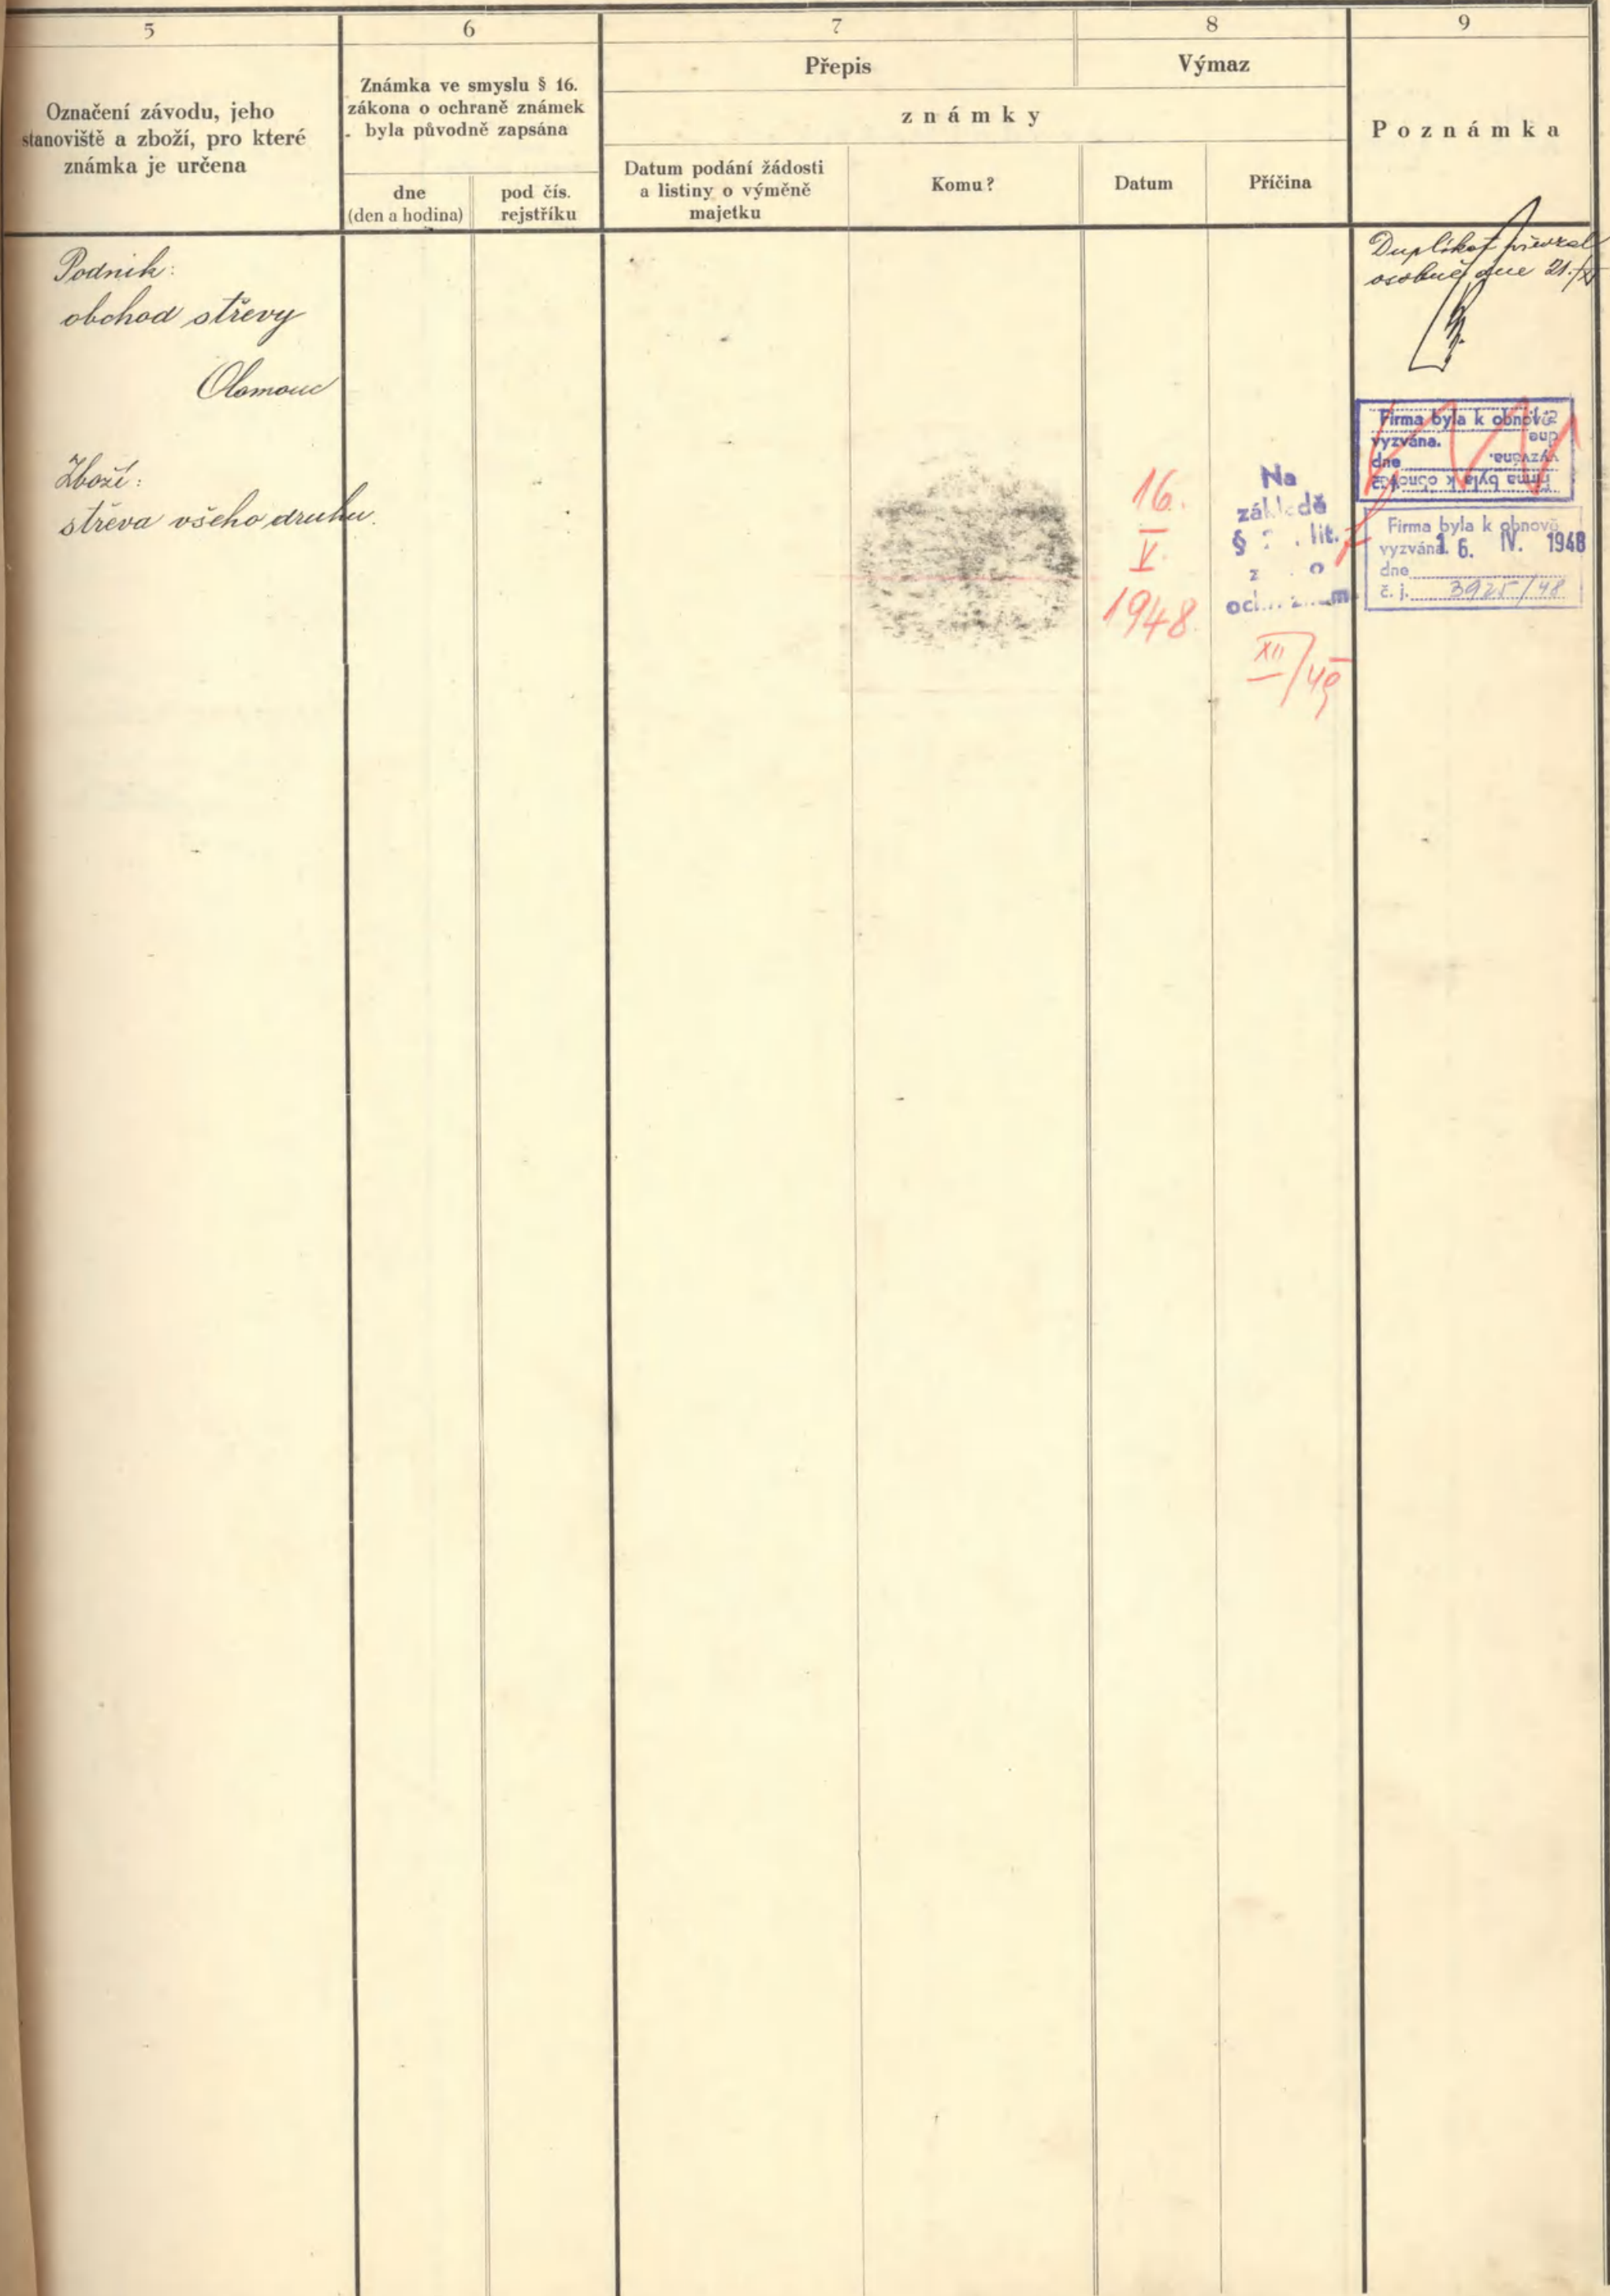 5
Označení závodu, jeho
stanoviště a zboží, pro které
známka je určena
6
Známka ve smyslu § 16.
zákona o ochraně známek
byla původně zapsána
dne
(den a hodina)
pod čís.
rejstříku
7
Přepis
8
Výmaz
známky
Datum podání žádosti
a listiny o výměně
majetku
Komu?
Datum
Příčina
9
Poznámka
Podnik:
obchod střevy
Olomouc
Zboží:
střeva všeho druhu.
16.
V.
1948
Na
základě
§ lit.
XII/49
Duplikát převzal
osobně dne 21./
Firma byla k obnově
vyzvána.
dne
Firma byla k obnově
vyzvána.
dne
Firma byla k obnově
vyzvána 16. IV. 1948
dne
č. j. 3925/48